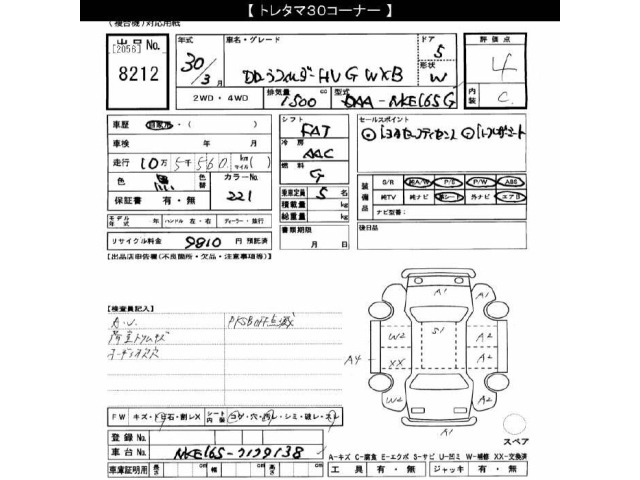 【 トレタマ30コーナー 】
(複合機)対応用紙
出品No.
[2056]
8212
年式
30/3月
車名・グレード
カローラフィールダーHV G WXB
ドア
5
形状
W
評価点
4
内装
C
2WD・4WD
排気量
1500 cc
型式
DAA-NKE165G
車歴
自家用・( )
車検
年 月
走行
10万5千560 km マイル ( )
色
黒
色替
カラーNo.
221
保証書
有・無
シフト
FAT
冷房
AAC
燃料
G
乗車定員
5 名
積載量
kg
総重量
kg
セールスポイント
装備品
S/R
純A/W
P/S
P/W
ABS
純TV
純ナビ
革シート
外ナビ
エアB
ナビ型番:
モデル年式
年
ハンドル 左・右
ディーラー・並行
リサイクル料金
9810 円 預託済
書類期限
月 日
後日品
【出品店申告欄(不良箇所・欠品・注意事項等)】
【検査員記入】
PKSB OFF点滅
A1
A1
S1
W2
A2
XX
A2
A4
W2
A2
A1
FW
キズ・飛石・割レX
シート内装
コゲ・穴・汚レ・シミ・破レ・スレ
スペア
登録No.
車台No.
NKE165-7179138
A-キズ C-腐食 E-エクボ S-サビ U-凹ミ W-補修 XX-交換済
車庫証明用
長さ cm
幅 cm
高さ cm
工具
有・無
ジャッキ
有・無